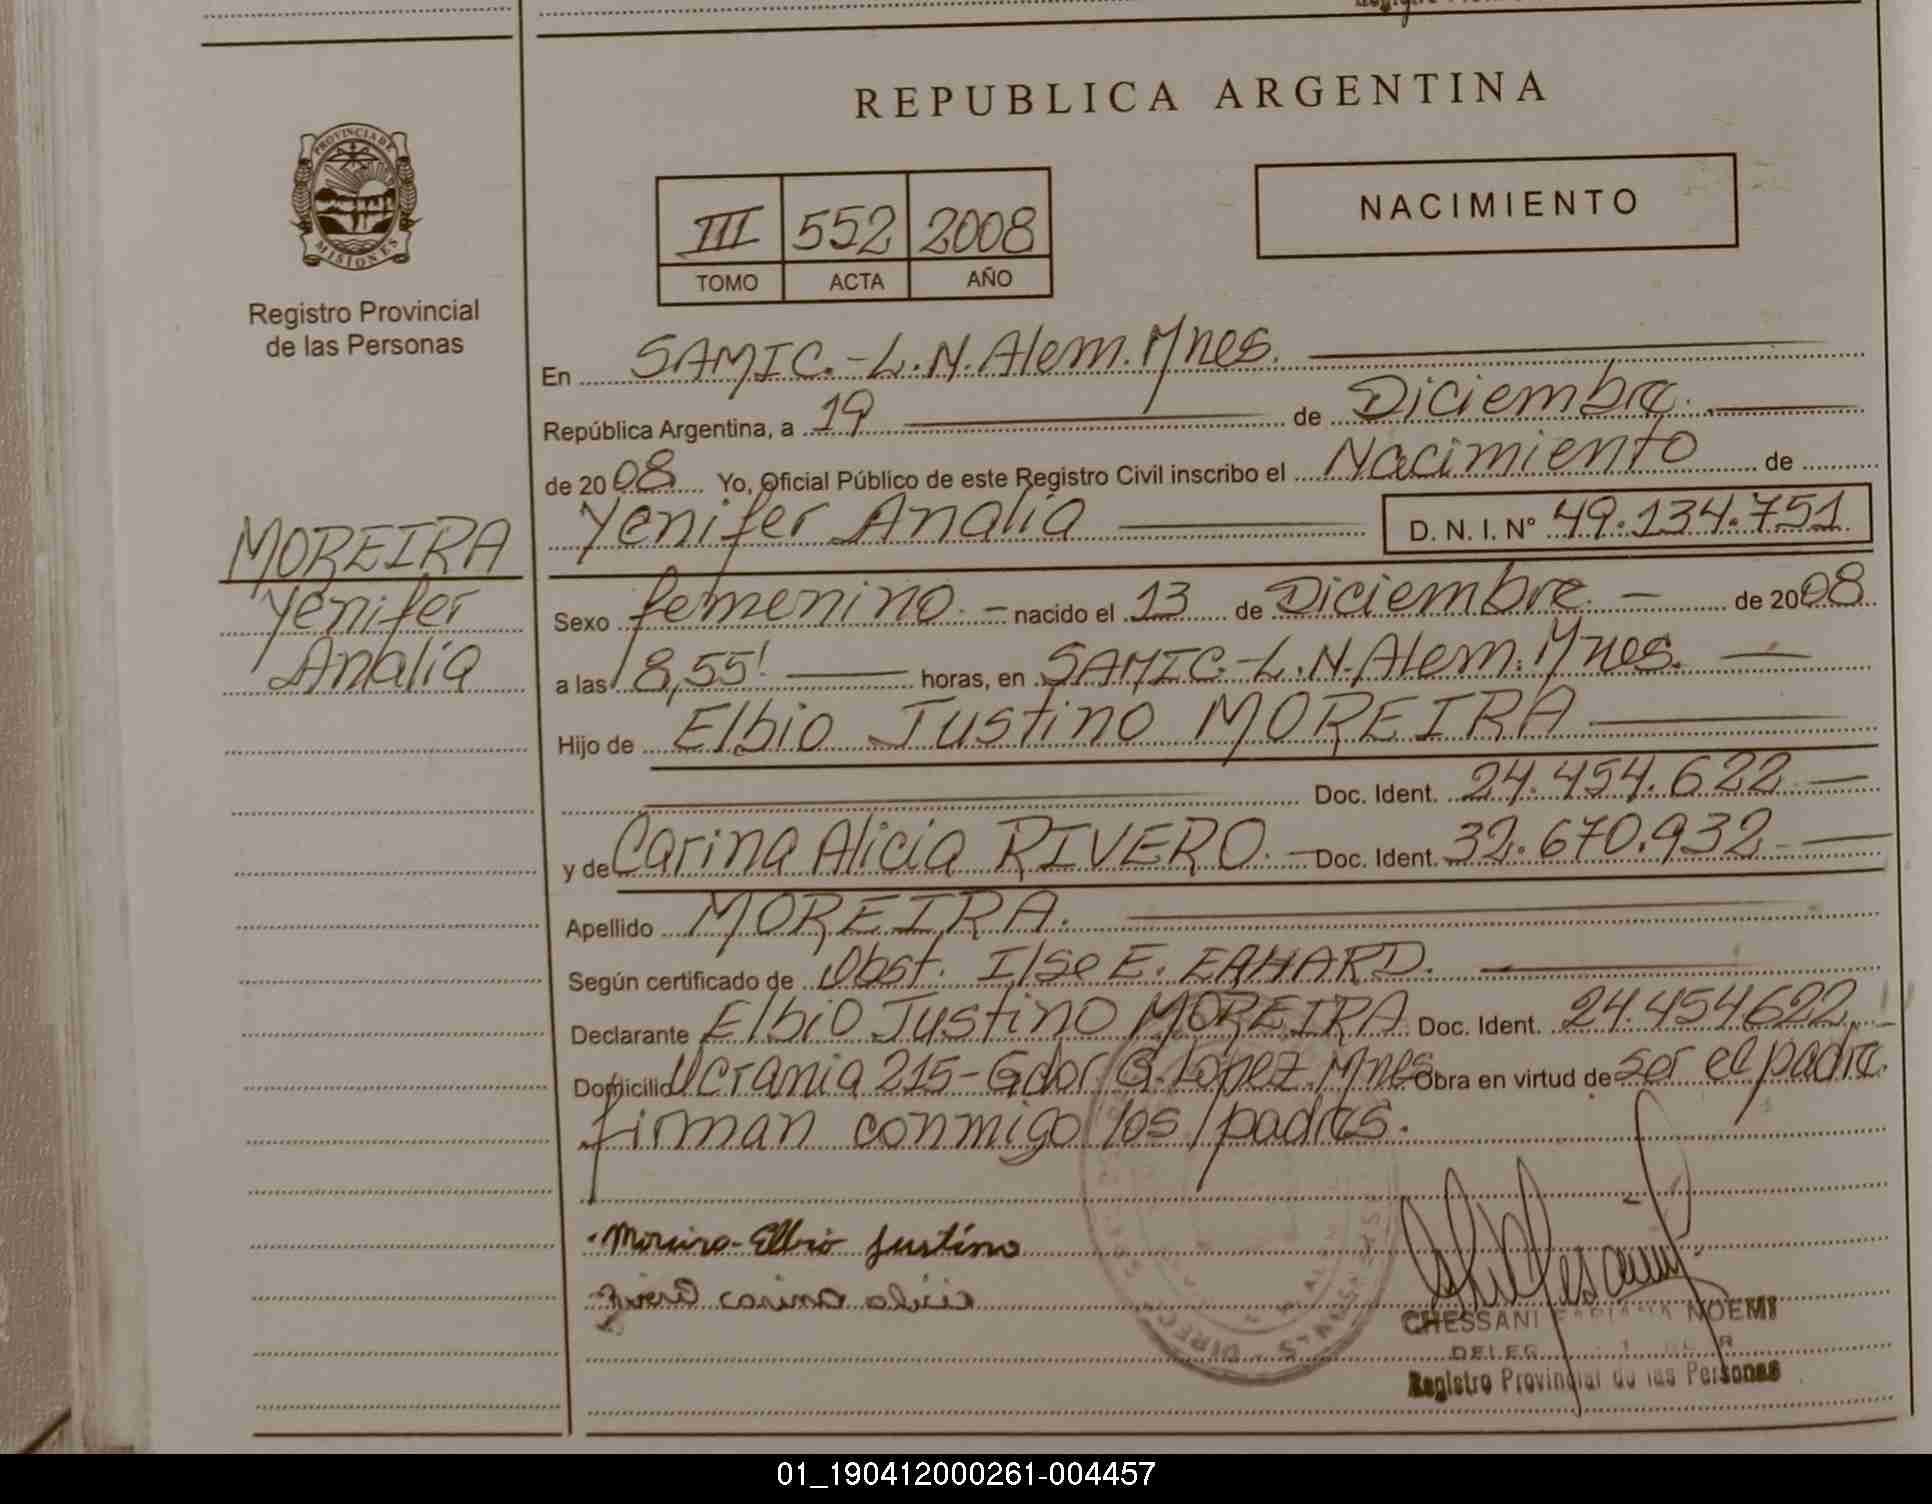 REPUBLICA ARGENTINA
PROVINCIA DE MISIONES
Registro Provincial
de las Personas
III 552 2008
TOMO ACTA AÑO
NACIMIENTO
En SAMIC.-L.N.Alem.Mnes.
República Argentina, a 19 de Diciembre.
de 2008 Yo, Oficial Público de este Registro Civil inscribo el Nacimiento de
Yenifer Analía D. N. I. Nº 49.134.751
MOREIRA
Yenifer
Analía
Sexo femenino.- nacido el 13 de Diciembre.- de 2008
a las 18,55' horas, en SAMIC.-L.N.Alem.Mnes.
Hijo de Elbio Justino MOREIRA
Doc. Ident. 24.454.622
y de Carina Alicia RIVERO.- Doc. Ident. 32.670.932
Apellido MOREIRA.
Según certificado de Obst. Ilse E. ERHARD.
Declarante Elbio Justino MOREIRA Doc. Ident. 24.454622
Domicilio Ucrania 215-Gdor G.López.Mnes Obra en virtud de ser el padre.
firman conmigo los padres.
Moreira-Elbio Justino
CHESSANI NOEMI
Registro Provincial de las Personas
01_190412000261-004457